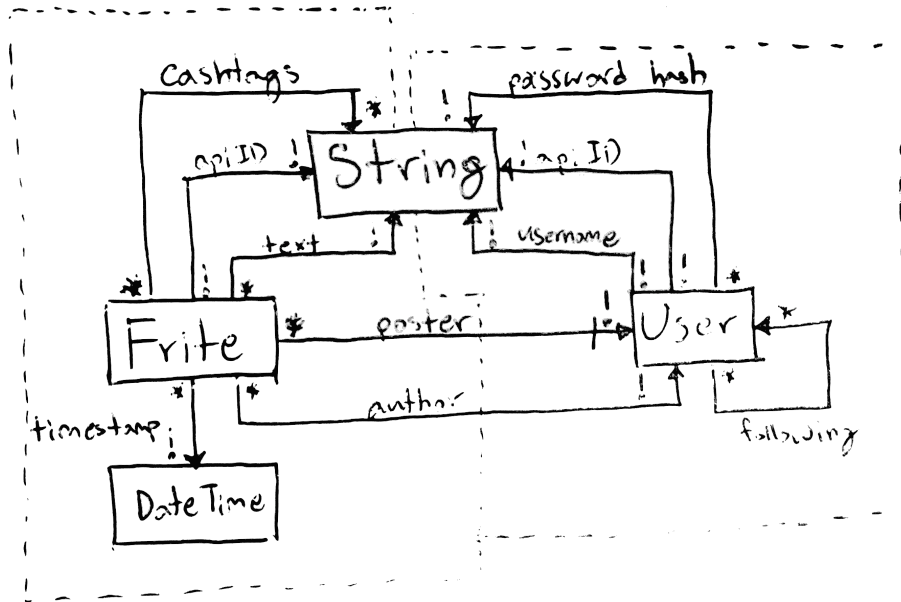 cashtags
password hash
* !
apiID ! String ! apiID
text ! ! username
* ! * ! ! *
Frite * poster ! User *
* * author ! *
timestamp !
following
DateTime